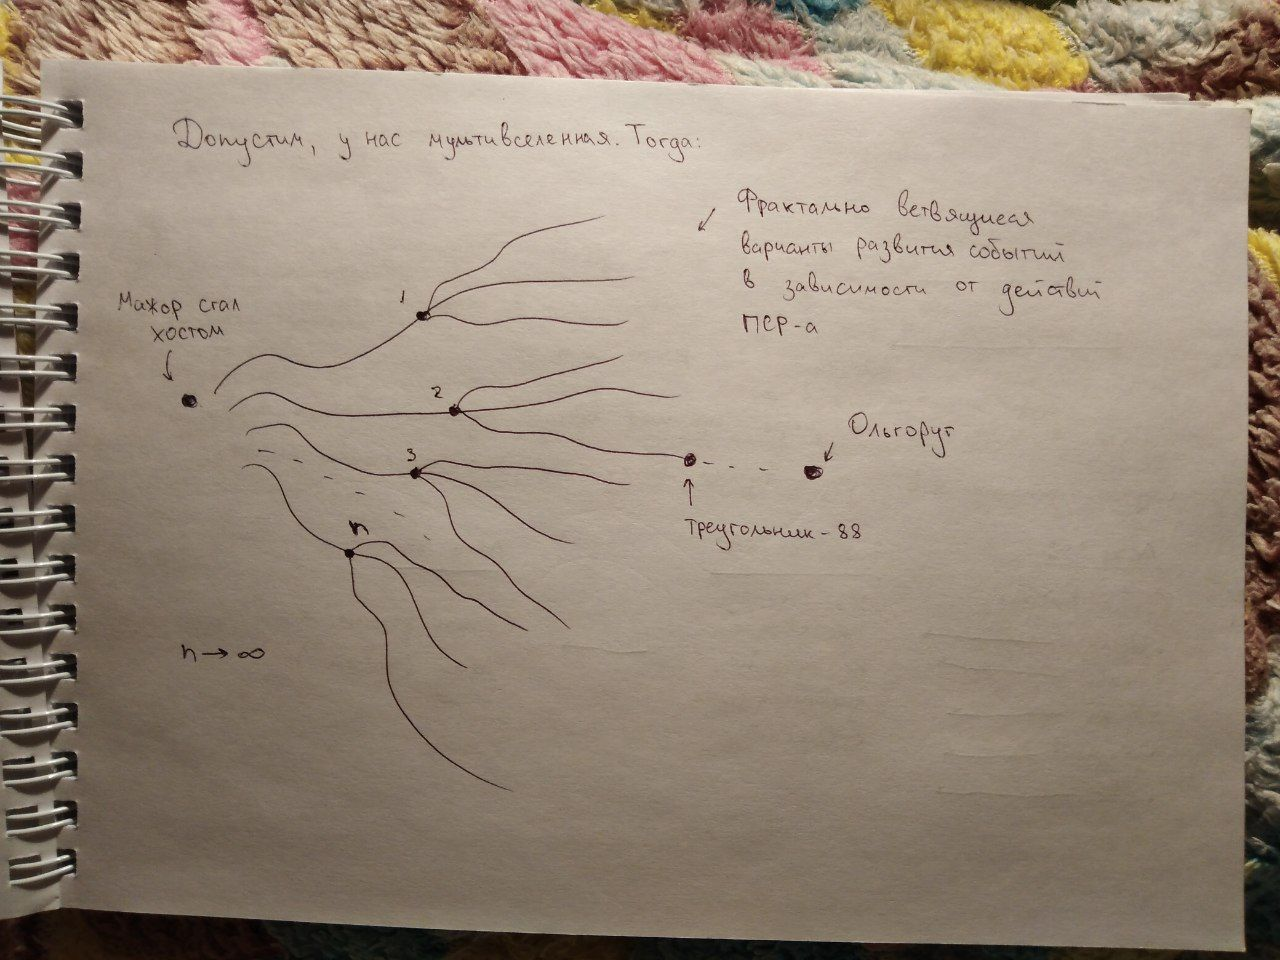 Допустим, у нас мультивселенная. Тогда:
Фрактально ветвящиеся
варианты развития событий
в зависимости от действий
ПСР-а
Мажор стал
хостом
1
2
3
n
Ольгорут
Треугольник-88
n→∞